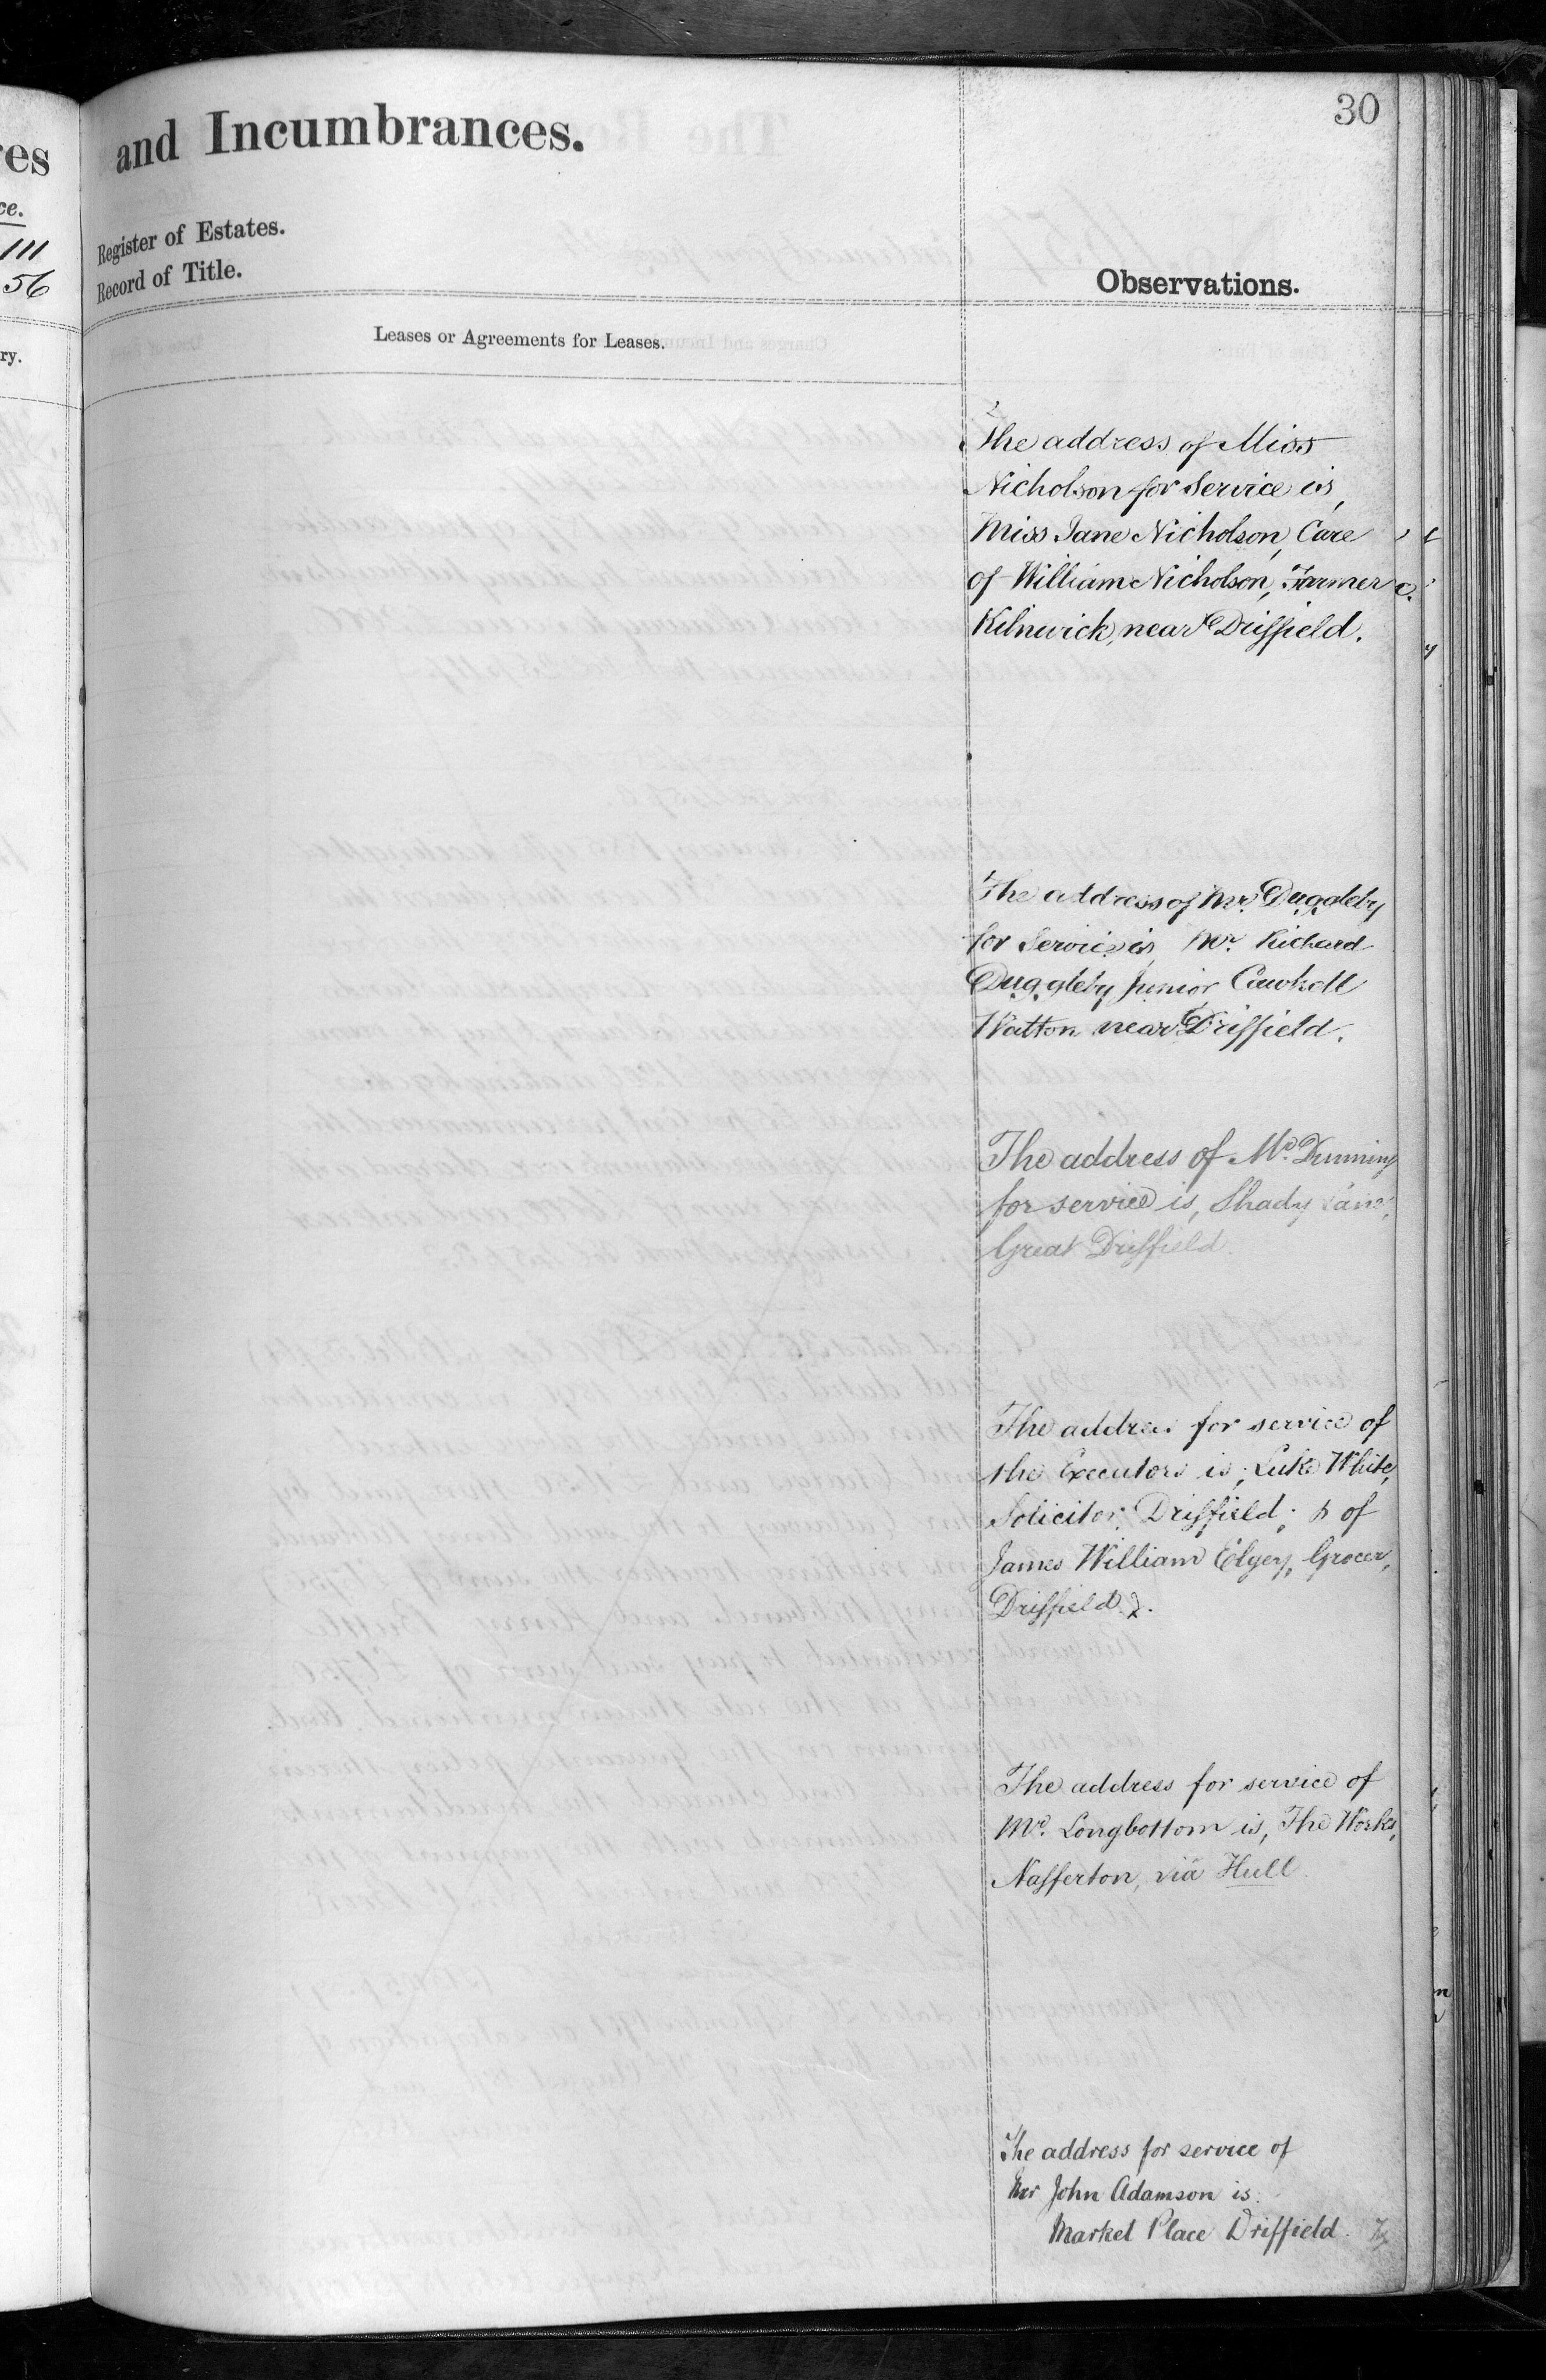 30
and Incumbrances.
Register of Estates.
Record of Title.
Observations.
Leases or Agreements for Leases.
The address of Miss
Nicholson for Service is,
Miss Jane Nicholson, Care
of William Nicholson, Farmer
Kilnwick, near Driffield.
The address of Mr. Duggleby
for Service is, Mr. Richard
Duggleby Junior, Cawkell
Watton near Driffield.
The address of Mr. Dunning
for service is, Shady Lane,
Great Driffield.
The address for service of
the Executors is, Luke White,
Solicitor, Driffield; & of
James William Elgey, Grocer,
Driffield.
The address for service of
Mr. Longbottom is, The Works,
Nafferton, via Hull
The address for service of
Mr John Adamson is
Market Place Driffield.
res
ce.
111
56
ry.